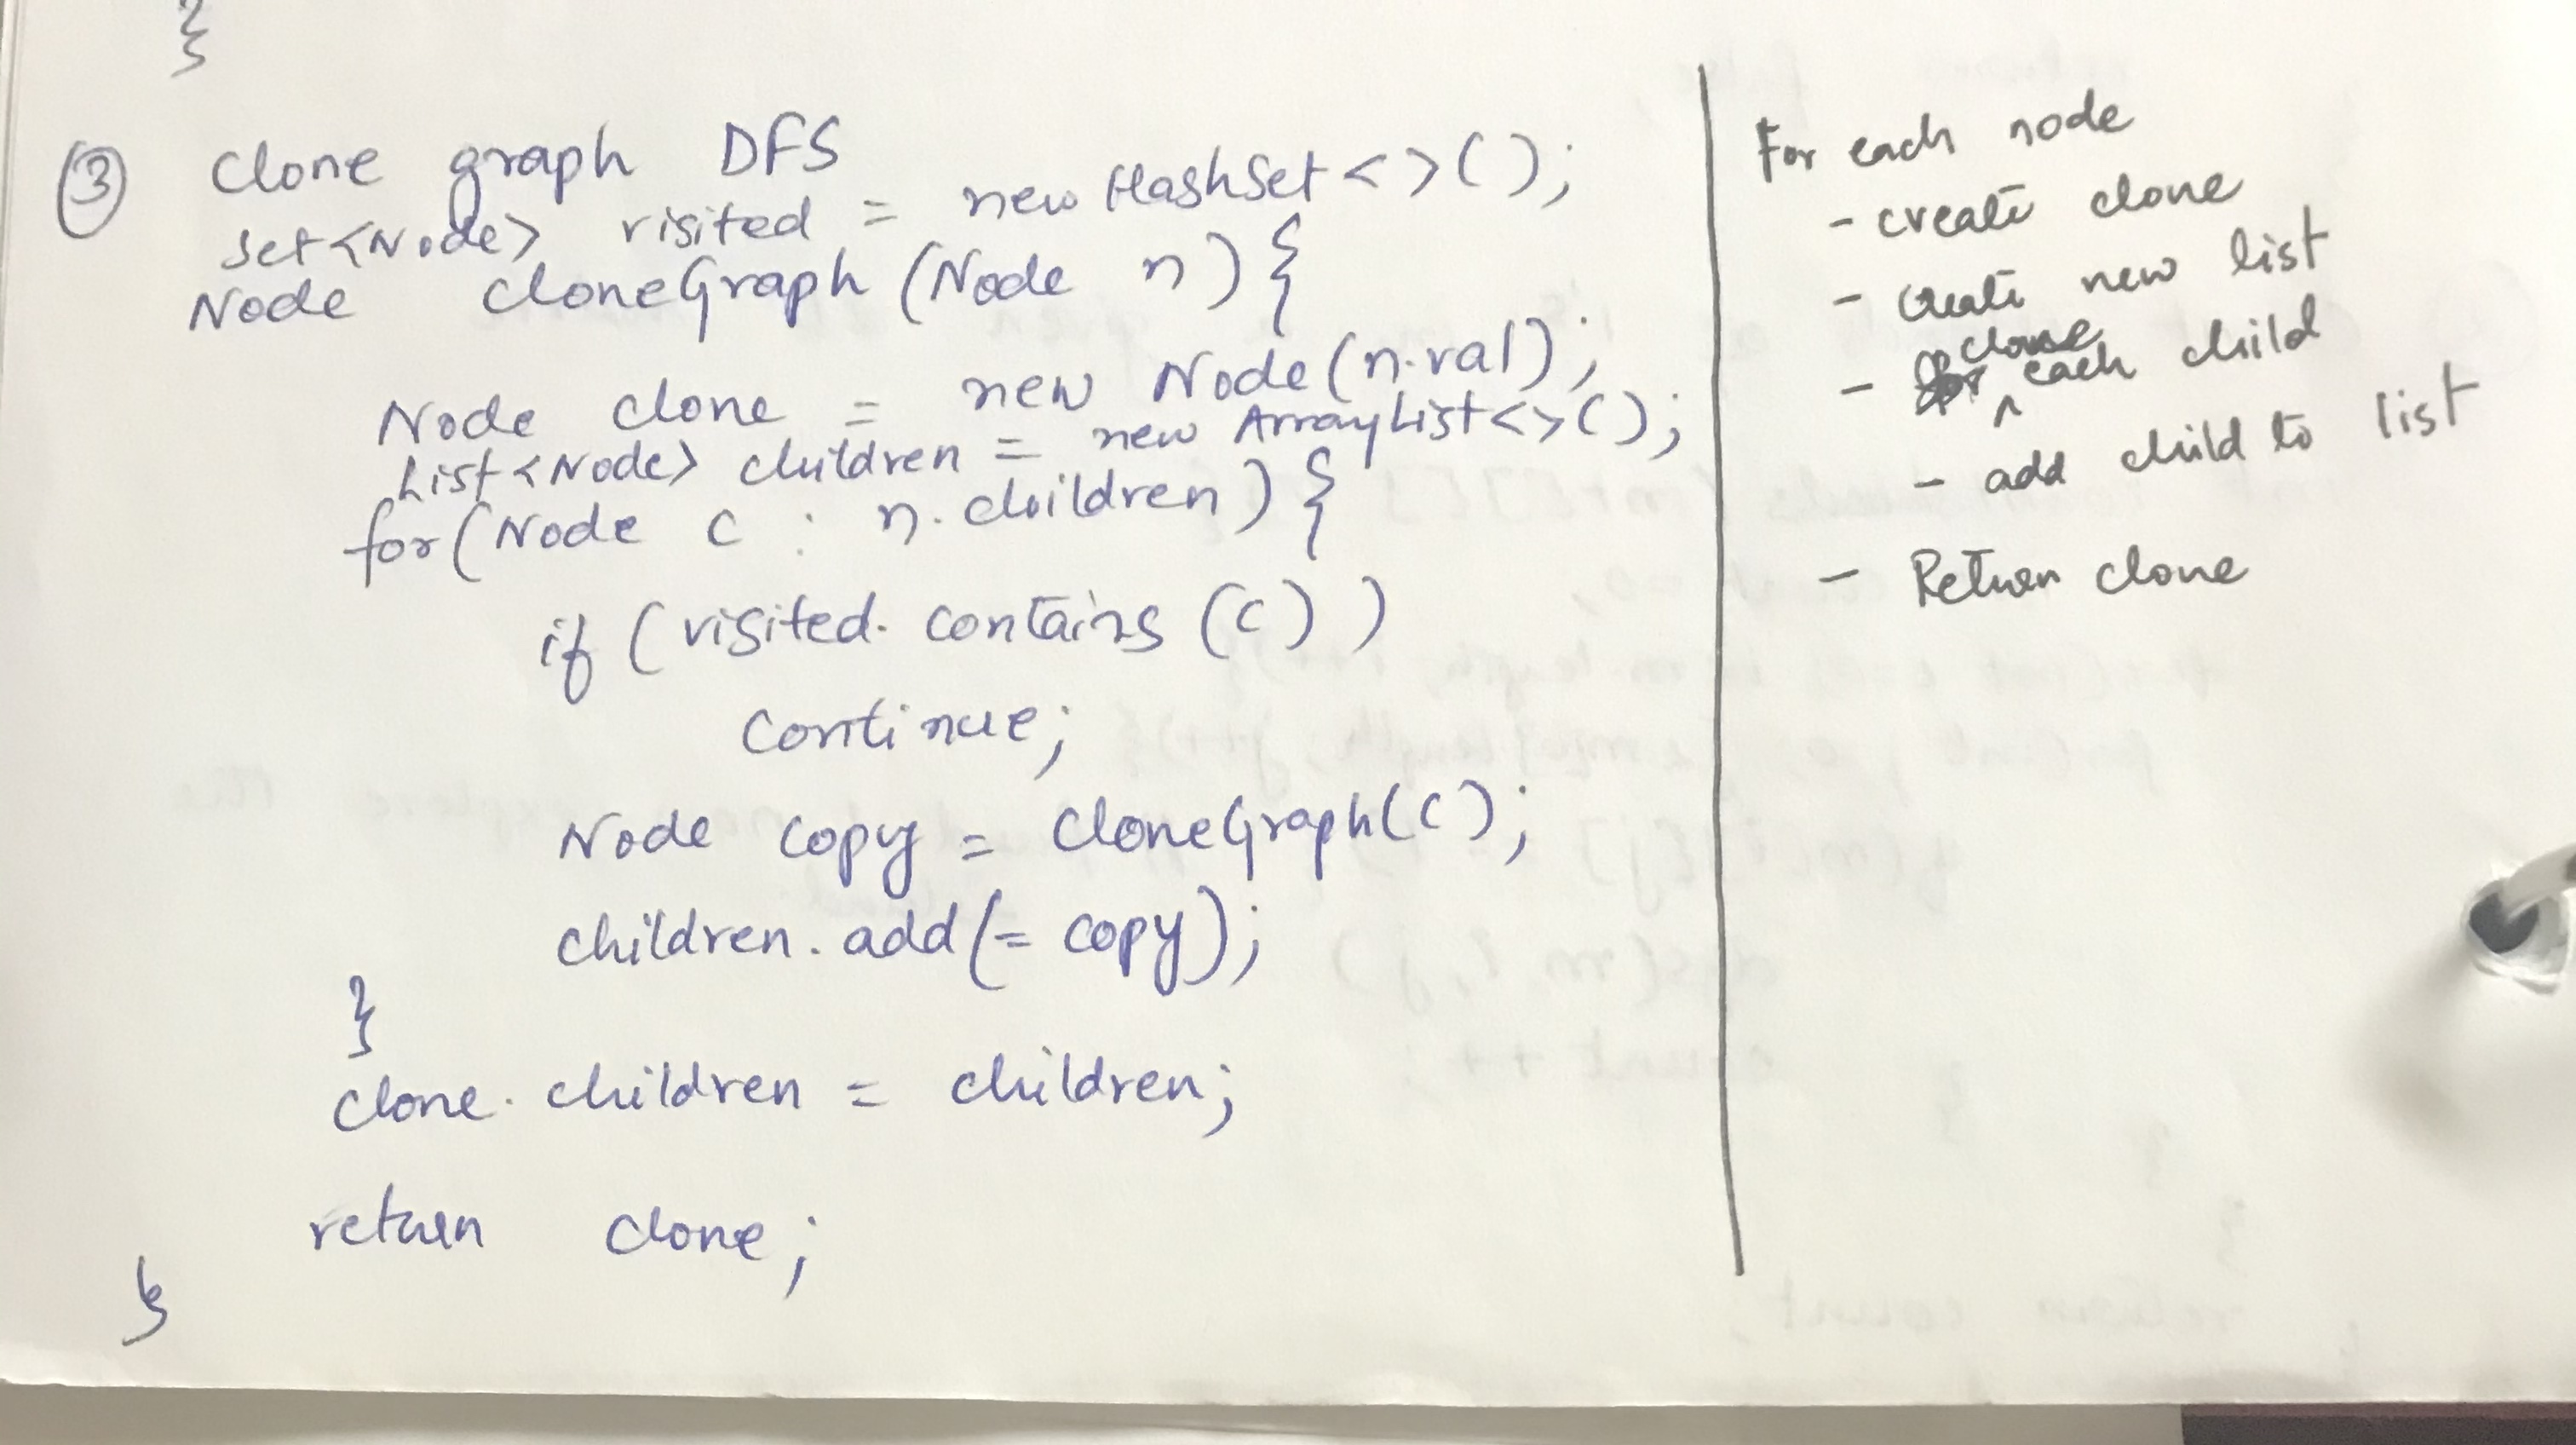 }
③ Clone graph DFS
Set<Node> visited = new HashSet<>();
Node cloneGraph(Node n){
Node clone = new Node(n.val);
List<Node> children = new ArrayList<>();
for(Node c : n.children){
if (visited.contains(c))
continue;
Node copy = cloneGraph(c);
children.add(= copy);
}
clone.children = children;
return clone;
}
For each node
- create clone
- create new list
- clone each child
- add child to list
- Return clone